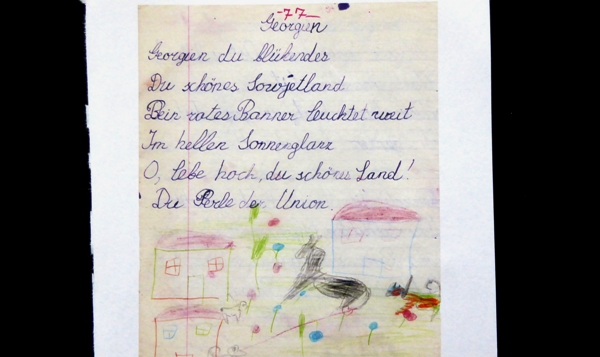 -77-
Georgien
Georgien du blühendes
Du schönes Sowjetland
Dein rotes Banner leuchtet weit
Im hellen Sonnenglanz
O, lebe hoch, du schönes Land!
Du Perle der Union.